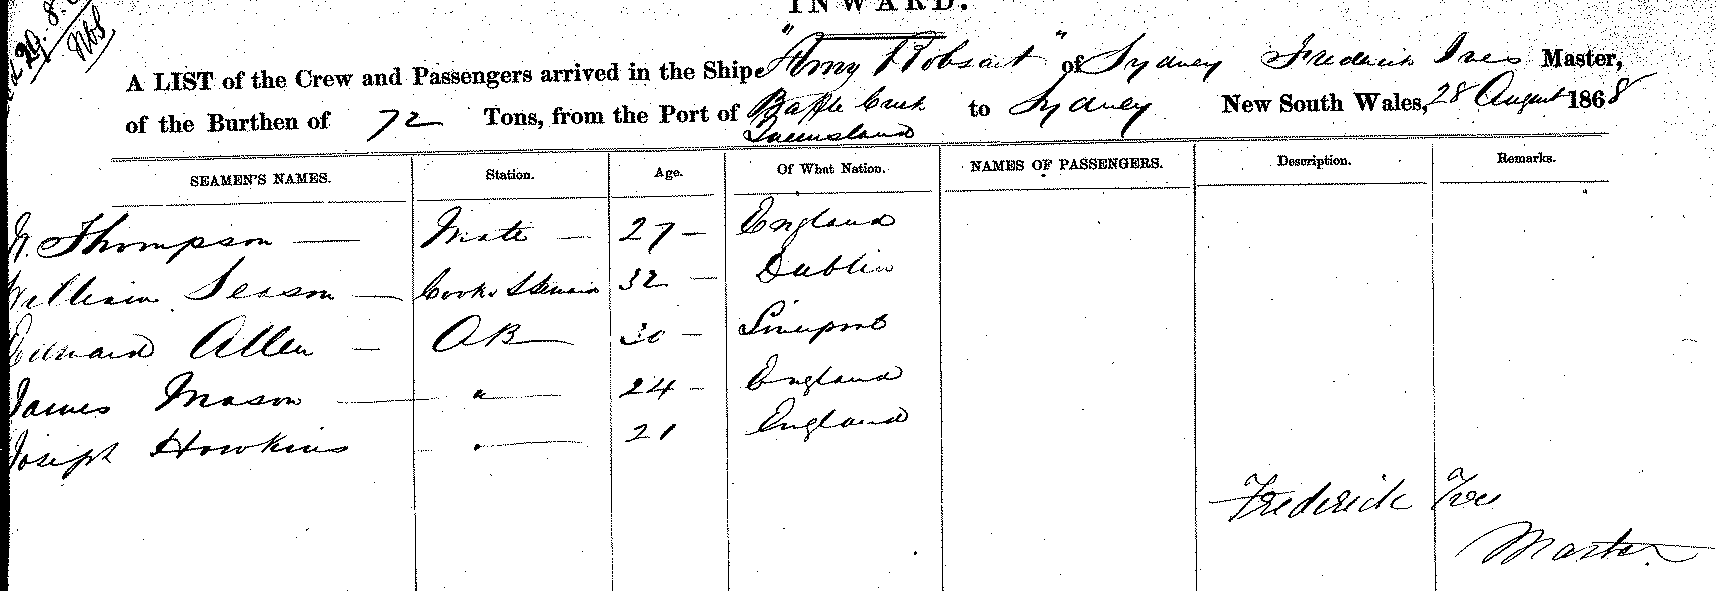 29.8.
INWARD.
A LIST of the Crew and Passengers arrived in the Ship "Amy Robsart" of Sydney Frederick Ives Master,
of the Burthen of 72 Tons, from the Port of Baffle Creek Queensland to Sydney New South Wales, 28 August 1868
SEAMEN'S NAMES. Station. Age. Of What Nation. NAMES OF PASSENGERS. Description. Remarks.
Thompson — Mate — 27 — England
William Season — Cook & Steward 32 — Dublin
Edward Allen — AB — 30 — Liverpool
James Mason — " — 24 — England
Joseph Howkins — " — 21 England
Frederick Ives
Master